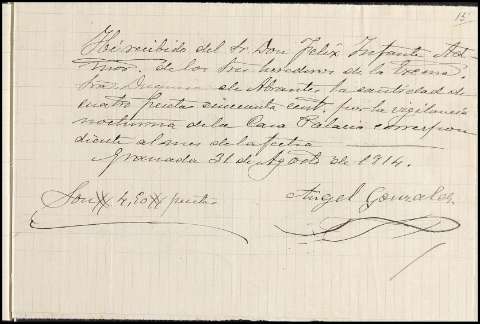 15
He recibido del Sr. Don Felix Infante Ad-
mor. de los tres herederos de la Excma.
Sra. Duquesa de Abrantes la cantidad de
cuatro pesetas cincuenta cent. por la vigilancia
nocturna de la Casa Palacio correspon
diente al mes de la fecha
Granada 31 de Agosto de 1914.
Son 4,50 pesetas
Angel Gonzalez